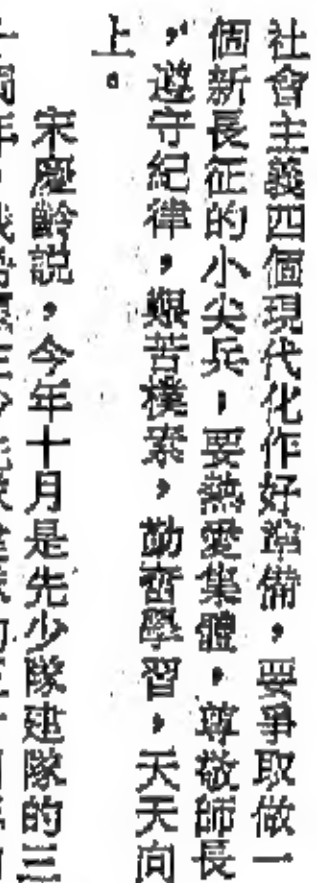 社會主義四個現代化作好準備，要爭取做一
個新長征的小尖兵，要熱愛集體，尊敬師長
，遵守紀律，艱苦樸素，勤奮學習，天天向
上。
宋慶齡説，今年十月是先少隊建隊的三